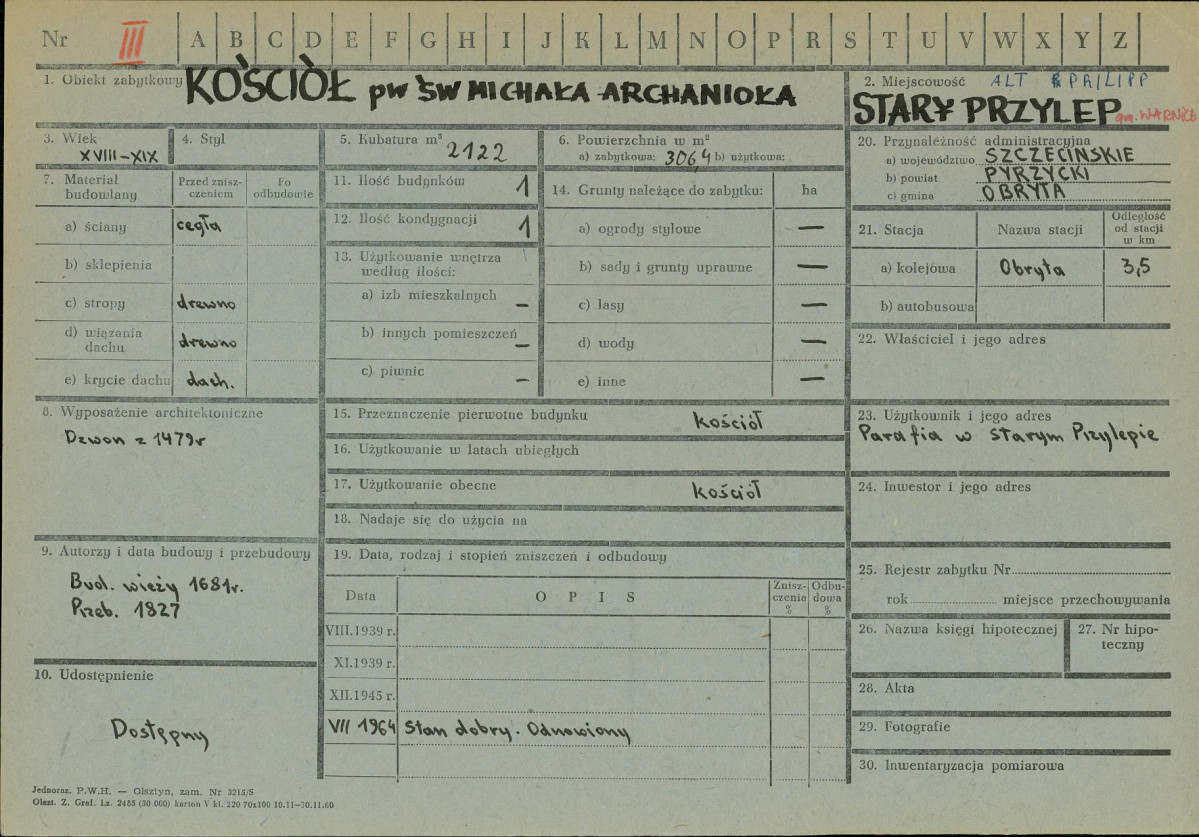 Nr III A B C D E F G H I J K L M N O P R S T U V W X Y Z
1. Obiekt zabytkowy KOŚCIÓŁ pw ŚW MICHAŁA ARCHANIOŁA
2. Miejscowość ALT PRILIPP
STARY PRZYLEP gm. WARNICE
3. Wiek
XVIII-XIX
4. Styl
5. Kubatura m³
2122
6. Powierzchnia w m²
a) zabytkowa: 306,4 b) użytkowa:
20. Przynależność administracyjna
a) województwo SZCZECIŃSKIE
b) powiat PYRZYCKI
c) gmina OBRYTA
7. Materiał budowlany
Przed znisz-
czeniem
Po
odbudowie
a) ściany cegła
b) sklepienia
c) stropy drewno
d) wiązania
dachu drewno
e) krycie dachu dach.
11. Ilość budynków 1
12. Ilość kondygnacji 1
13. Użytkowanie wnętrza
według ilości:
a) izb mieszkalnych –
b) innych pomieszczeń –
c) piwnic –
14. Grunty należące do zabytku: ha
a) ogrody stylowe —
b) sady i grunty uprawne —
c) lasy —
d) wody —
e) inne —
21. Stacja
Nazwa stacji
Odległość
od stacji
w km
a) kolejowa Obryta 3,5
b) autobusowa
22. Właściciel i jego adres
8. Wyposażenie architektoniczne
Dzwon z 1479r
15. Przeznaczenie pierwotne budynku kościół
16. Użytkowanie w latach ubiegłych
17. Użytkowanie obecne kościół
18. Nadaje się do użycia na
23. Użytkownik i jego adres
Parafia w Starym Przylepie
24. Inwestor i jego adres
9. Autorzy i data budowy i przebudowy
Bud. wieży 1681r.
Przeb. 1827
19. Data, rodzaj i stopień zniszczeń i odbudowy
Data
O P I S
Znisz-
czenia
%
Odbu-
dowa
%
VIII.1939 r.
XI.1939 r.
XII.1945 r.
VII 1964 Stan dobry. Odnowiony
25. Rejestr zabytku Nr
rok miejsce przechowywania
26. Nazwa księgi hipotecznej
27. Nr hipo-
teczny
10. Udostępnienie
Dostępny
28. Akta
29. Fotografie
30. Inwentaryzacja pomiarowa
Jednoraz. P.W.H. — Olsztyn, zam. Nr 3215/S
Olszt. Z. Graf. Lz. 2455 (30 000) karton V kl. 220 70x100 10.11—30.11.60